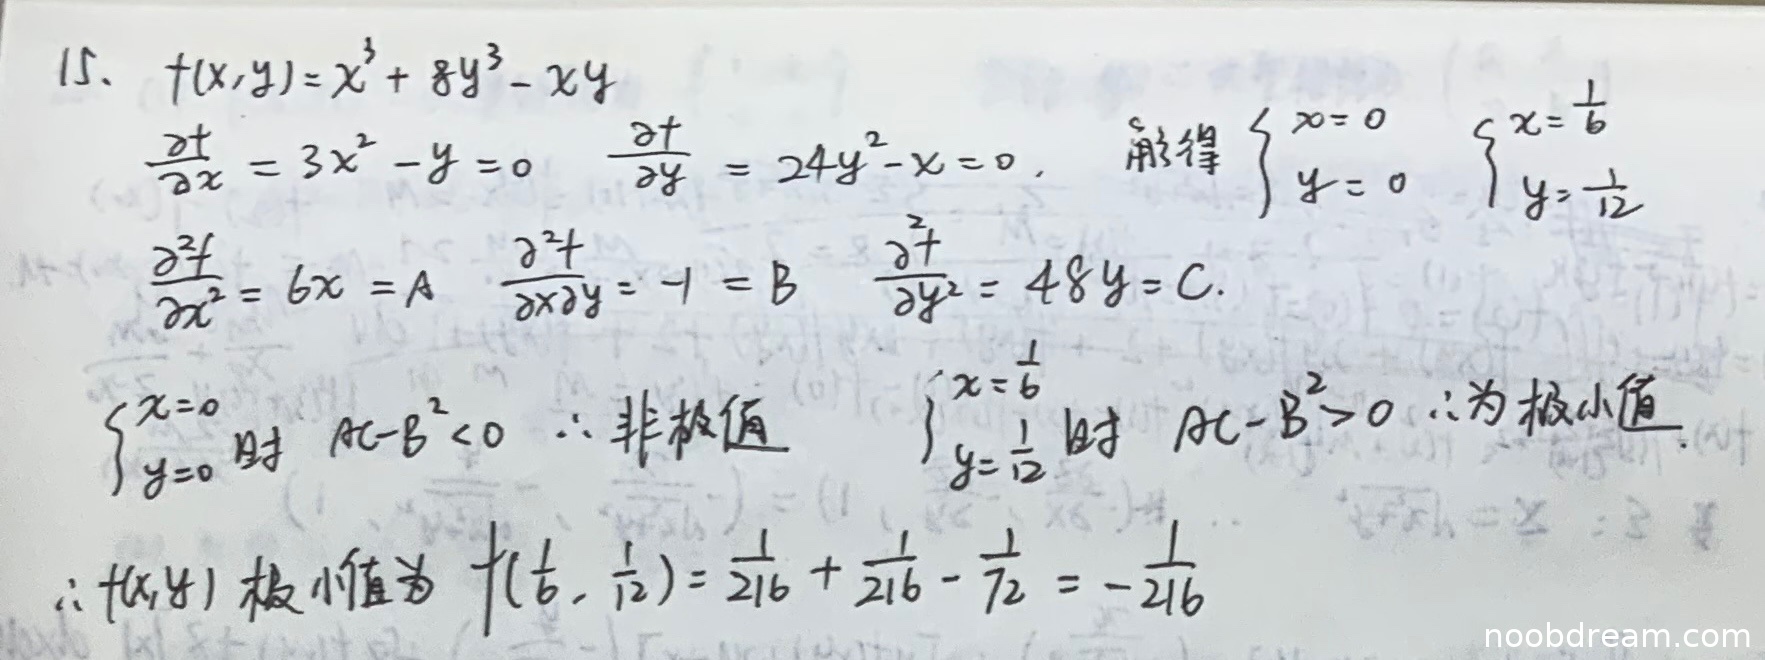 15、 f(x,y)=x³+8y³-xy
∂f/∂x = 3x²-y=0 ∂f/∂y = 24y²-x=0. 解得 { x=0 y=0 { x=1/6 y=1/12
∂²f/∂x² = 6x = A ∂²f/∂x∂y = -1 = B ∂²f/∂y² = 48y = C.
{ x=0 y=0 时 AC-B²<0 ∴非极值 { x=1/6 y=1/12 时 AC-B²>0 ∴为极小值.
∴ f(x,y) 极小值为 f(1/6, 1/12) = 1/216 + 1/216 - 1/72 = -1/216
noobdream.com